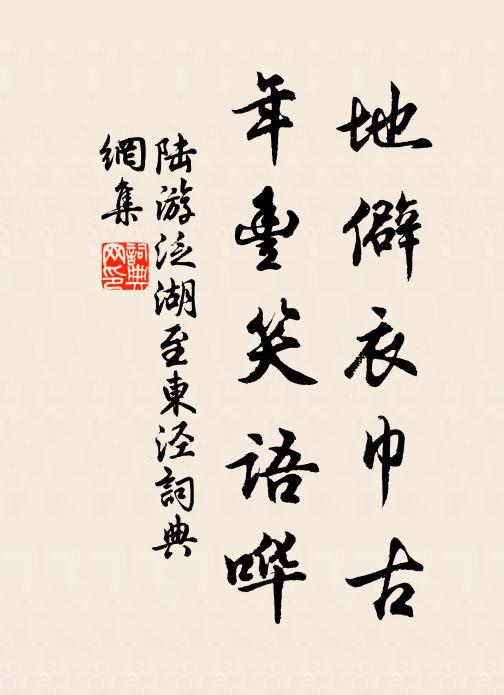 地僻衣巾古
年豐笑語哗
陆游泛湖至東泾詞典
網集
詞典网印